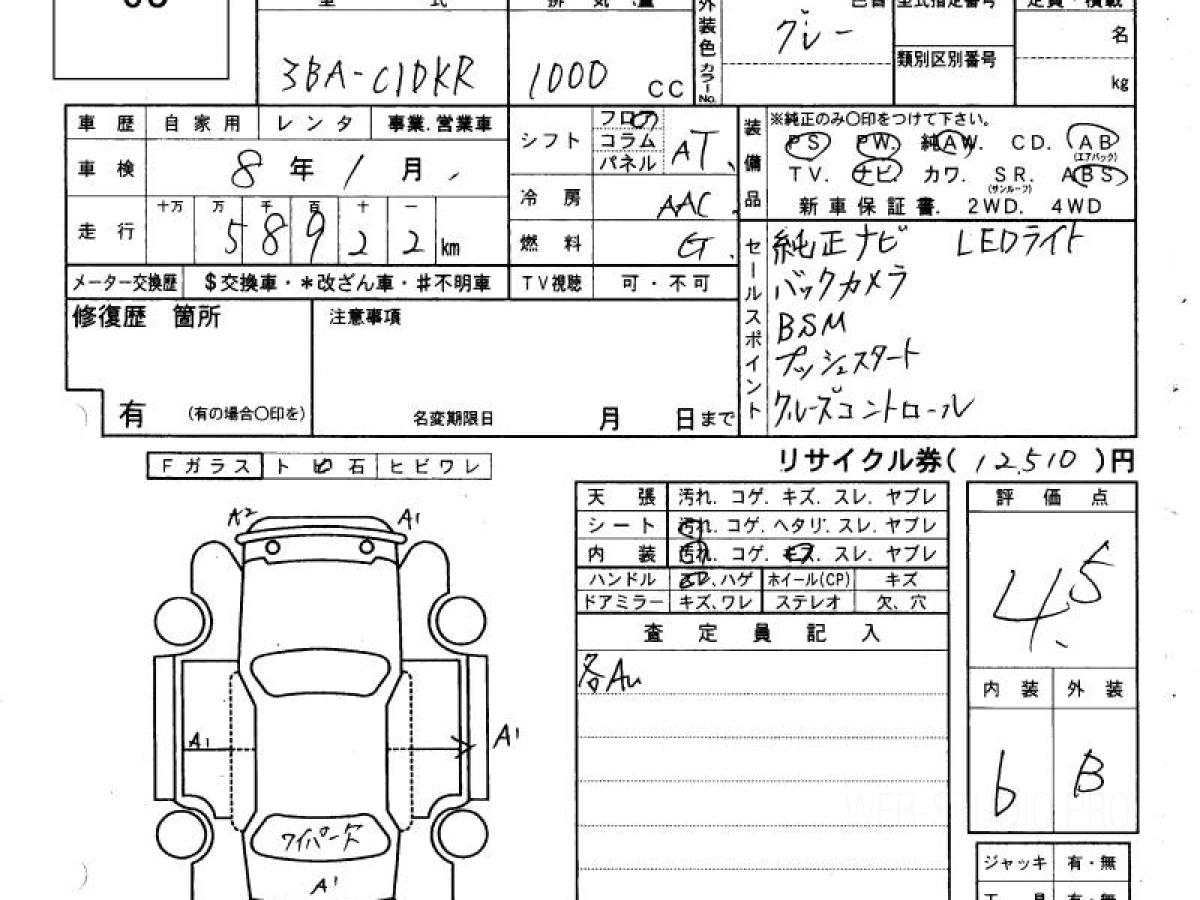 型 式 排 気 量 外装色 カラーNo. 色替 型式指定番号 定員・積載
3BA-C1DKR 1000 CC グレー 類別区別番号 名 kg
車歴 自家用 レンタ 事業.営業車 シフト フロア コラム パネル AT 装備品 ※純正のみ〇印をつけて下さい。
PS PW. 純AW. CD. AB(エアバッグ)
車検 8年 1月 TV. ナビ. カワ. SR.(サンルーフ) ABS
冷房 AAC 新車保証書. 2WD. 4WD
走行 十万 万 千 百 十 一
58922 km 燃料 G.
メーター交換歴 $交換車・*改ざん車・#不明車 TV視聴 可・不可
セールスポイント 純正ナビ LEDライト
バックカメラ
BSM
プッシュスタート
クルーズコントロール
修復歴 箇所 注意事項
有 (有の場合〇印を) 名変期限日 月 日まで
リサイクル券( 12,510 )円
Fガラス トビ石 ヒビワレ
天張 汚れ. コゲ. キズ. スレ. ヤブレ
シート 汚れ. コゲ. ヘタリ. スレ. ヤブレ
内装 汚れ. コゲ. キズ. スレ. ヤブレ
ハンドル スレ、ハゲ ホイール(CP) キズ
ドアミラー キズ、ワレ ステレオ 欠、穴
査定員記入
各Au
評価点
4.5
内装 外装
b B
A2 A1
A1 A1
ワイパー欠
A1
WEB-STUDIO PRO
ジャッキ 有・無
工具 有・無